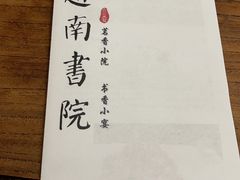 南書院
茗香小院
书香小宴